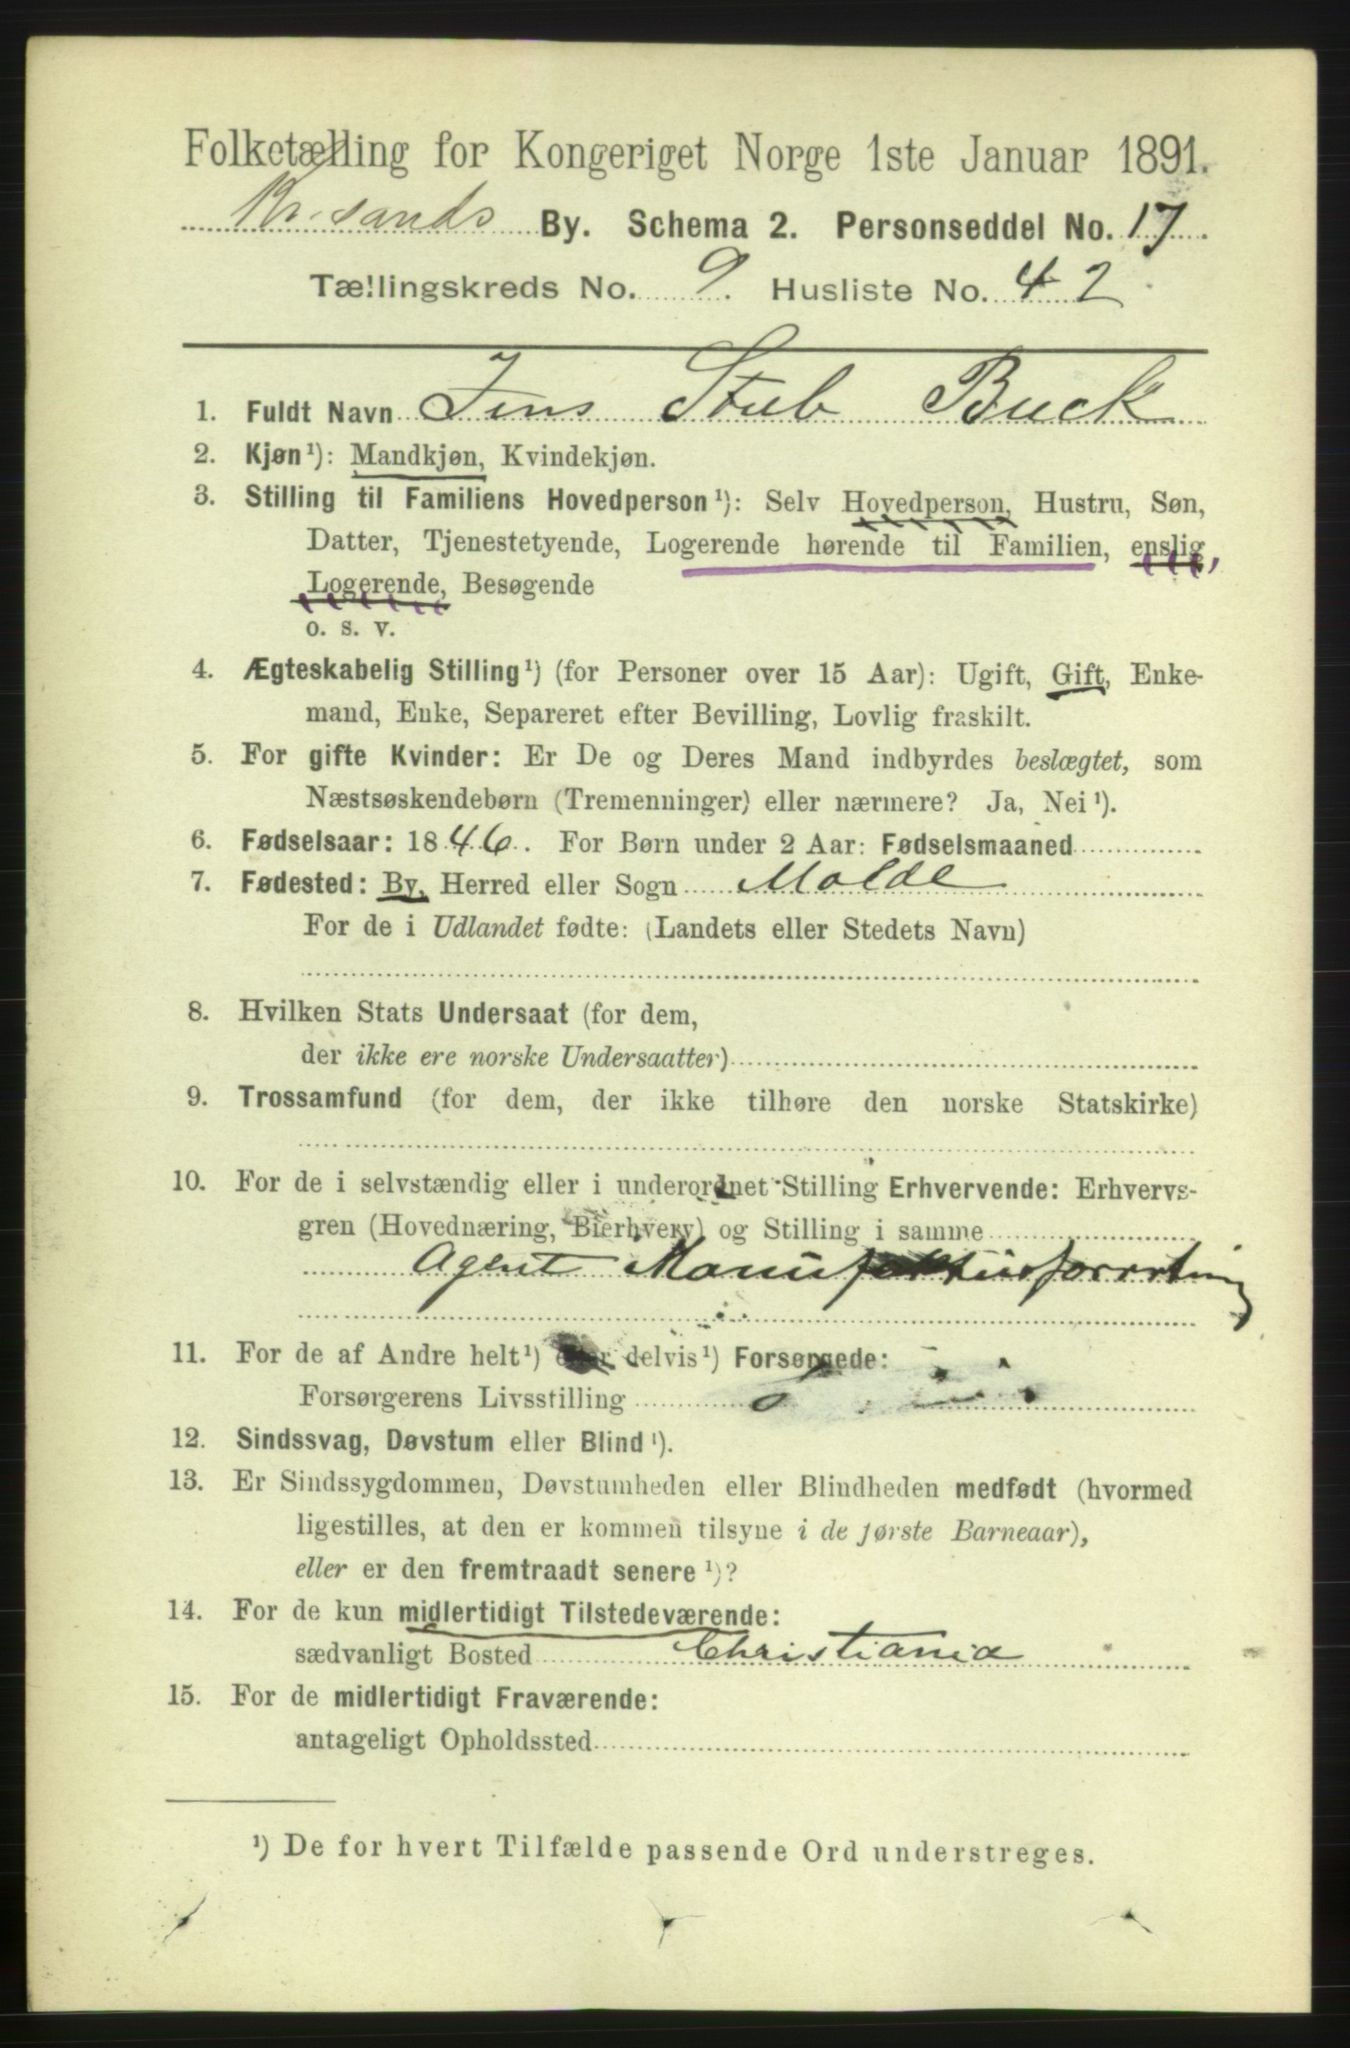 Folketælling for Kongeriget Norge 1ste Januar 1891.
Kr.sands By. Schema 2. Personseddel No. 17.
Tællingskreds No. 9. Husliste No. 42
1. Fuldt Navn Jens Stub Buck
2. Kjøn¹): Mandkjøn, Kvindekjøn.
3. Stilling til Familiens Hovedperson¹): Selv Hovedperson, Hustru, Søn,
Datter, Tjenestetyende, Logerende hørende til Familien, enslig,
Logerende, Besøgende
o. s. v.
4. Ægteskabelig Stilling¹) (for Personer over 15 Aar): Ugift, Gift, Enke-
mand, Enke, Separeret efter Bevilling, Lovlig fraskilt.
5. For gifte Kvinder: Er De og Deres Mand indbyrdes beslægtet, som
Næstsøskendebørn (Tremenninger) eller nærmere? Ja, Nei¹).
6. Fødselsaar: 1846. For Børn under 2 Aar: Fødselsmaaned
7. Fødested: By, Herred eller Sogn Molde
For de i Udlandet fødte: (Landets eller Stedets Navn)
8. Hvilken Stats Undersaat (for dem,
der ikke ere norske Undersaatter)
9. Trossamfund (for dem, der ikke tilhøre den norske Statskirke)
10. For de i selvstændig eller i underordnet Stilling Erhvervende: Erhvervs-
gren (Hovednæring, Bierhverv) og Stilling i samme
Agent Manufakturforretning
11. For de af Andre helt¹) eller delvis¹) Forsørgede:
Forsørgerens Livsstilling
12. Sindssvag, Døvstum eller Blind¹).
13. Er Sindssygdommen, Døvstumheden eller Blindheden medfødt (hvormed
ligestilles, at den er kommen tilsyne i de første Barneaar),
eller er den fremtraadt senere¹)?
14. For de kun midlertidigt Tilstedeværende:
sædvanligt Bosted Christiania
15. For de midlertidigt Fraværende:
antageligt Opholdssted
¹) De for hvert Tilfælde passende Ord understreges.